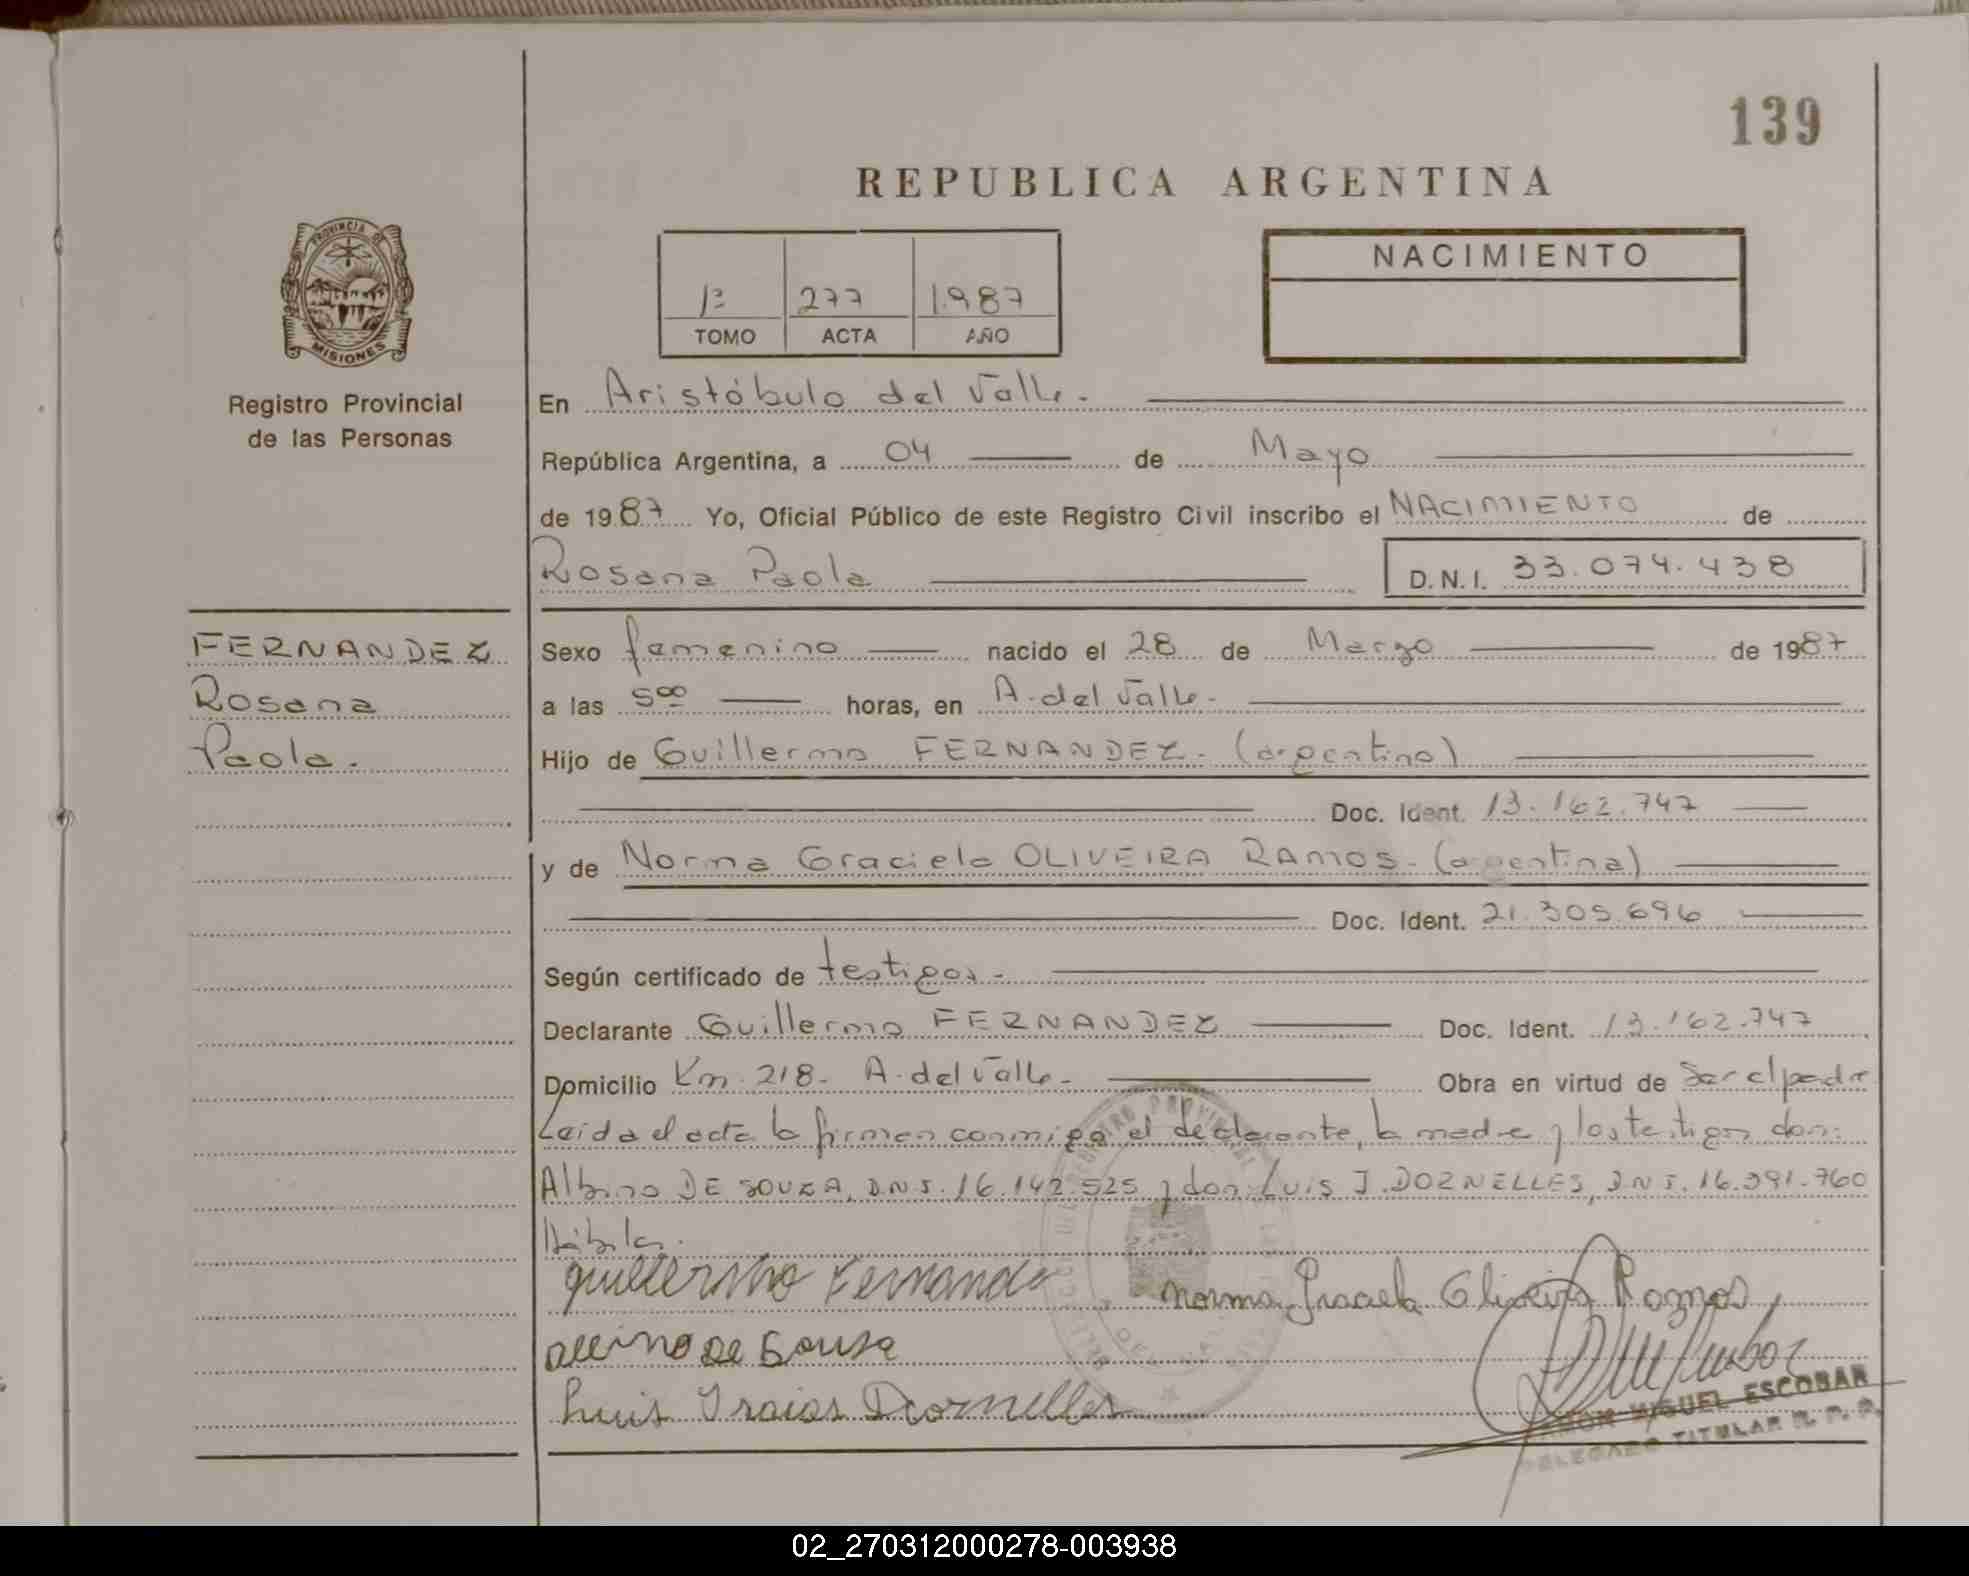 139
REPUBLICA ARGENTINA
PROVINCIA DE
MISIONES
Registro Provincial
de las Personas
NACIMIENTO
1º 277 1.987
TOMO ACTA AÑO
En Aristóbulo del Valle.
República Argentina, a 04 de Mayo
de 1987 Yo, Oficial Público de este Registro Civil inscribo el NACIMIENTO de
Rosana Paola D.N.I. 33.074.438
FERNANDEZ
Rosana
Paola.
Sexo femenino nacido el 28 de Marzo de 1987
a las 5 00 horas, en A. del Valle.
Hijo de Guillermo FERNANDEZ. (argentino)
Doc. Ident. 13.162.747
y de Norma Graciela OLIVEIRA RAMOS. (argentina)
Doc. Ident. 21.305.696
Según certificado de testigos.
Declarante Guillermo FERNANDEZ Doc. Ident. 13.162.747
Domicilio Km. 218. A. del Valle. Obra en virtud de Ser el padre
Leida el acta la firman conmigo el declarante, la madre y los testigos don:
Albino DE SOUZA, D.N.I. 16.142.525 y don Luis I. DORNELLES, D.N.I. 16.391.760
Hábiles.
guillermo Fernande
Norma Graciela Oliveira Ramos
Albino De Souza
Luis Isaias Dornelles
RAMON MIGUEL ESCOBAR
DELEGADO TITULAR R. P. P.
02_270312000278-003938